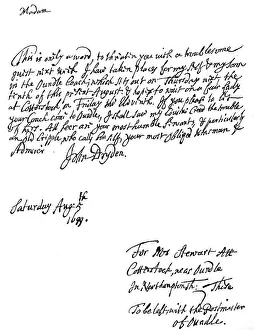 Madam
This is only a word, to threaten you with a troublesome
guest next week. I have taken places for my self & my Sonn
in the Oundle Coach, which sets out on Thursday next the
tenth of this present August. & hope to wait on a fair Lady
at Cotterstock on Friday the eleventh. If you please to let
your Coach come to Oundle, I shall save my Cousin Creed the trouble
of hers. All here are your most humble Servants, & particularly
an old Cripple who calls him self your most obliged Kinsman &
Admirer
John Dryden.
Saturday Aug: 5th
1699.
For Mrs Stewart Att
Cotterstock, near Oundle
In Northamptonsh: These
To be left with the Postmaster
of Oundle.